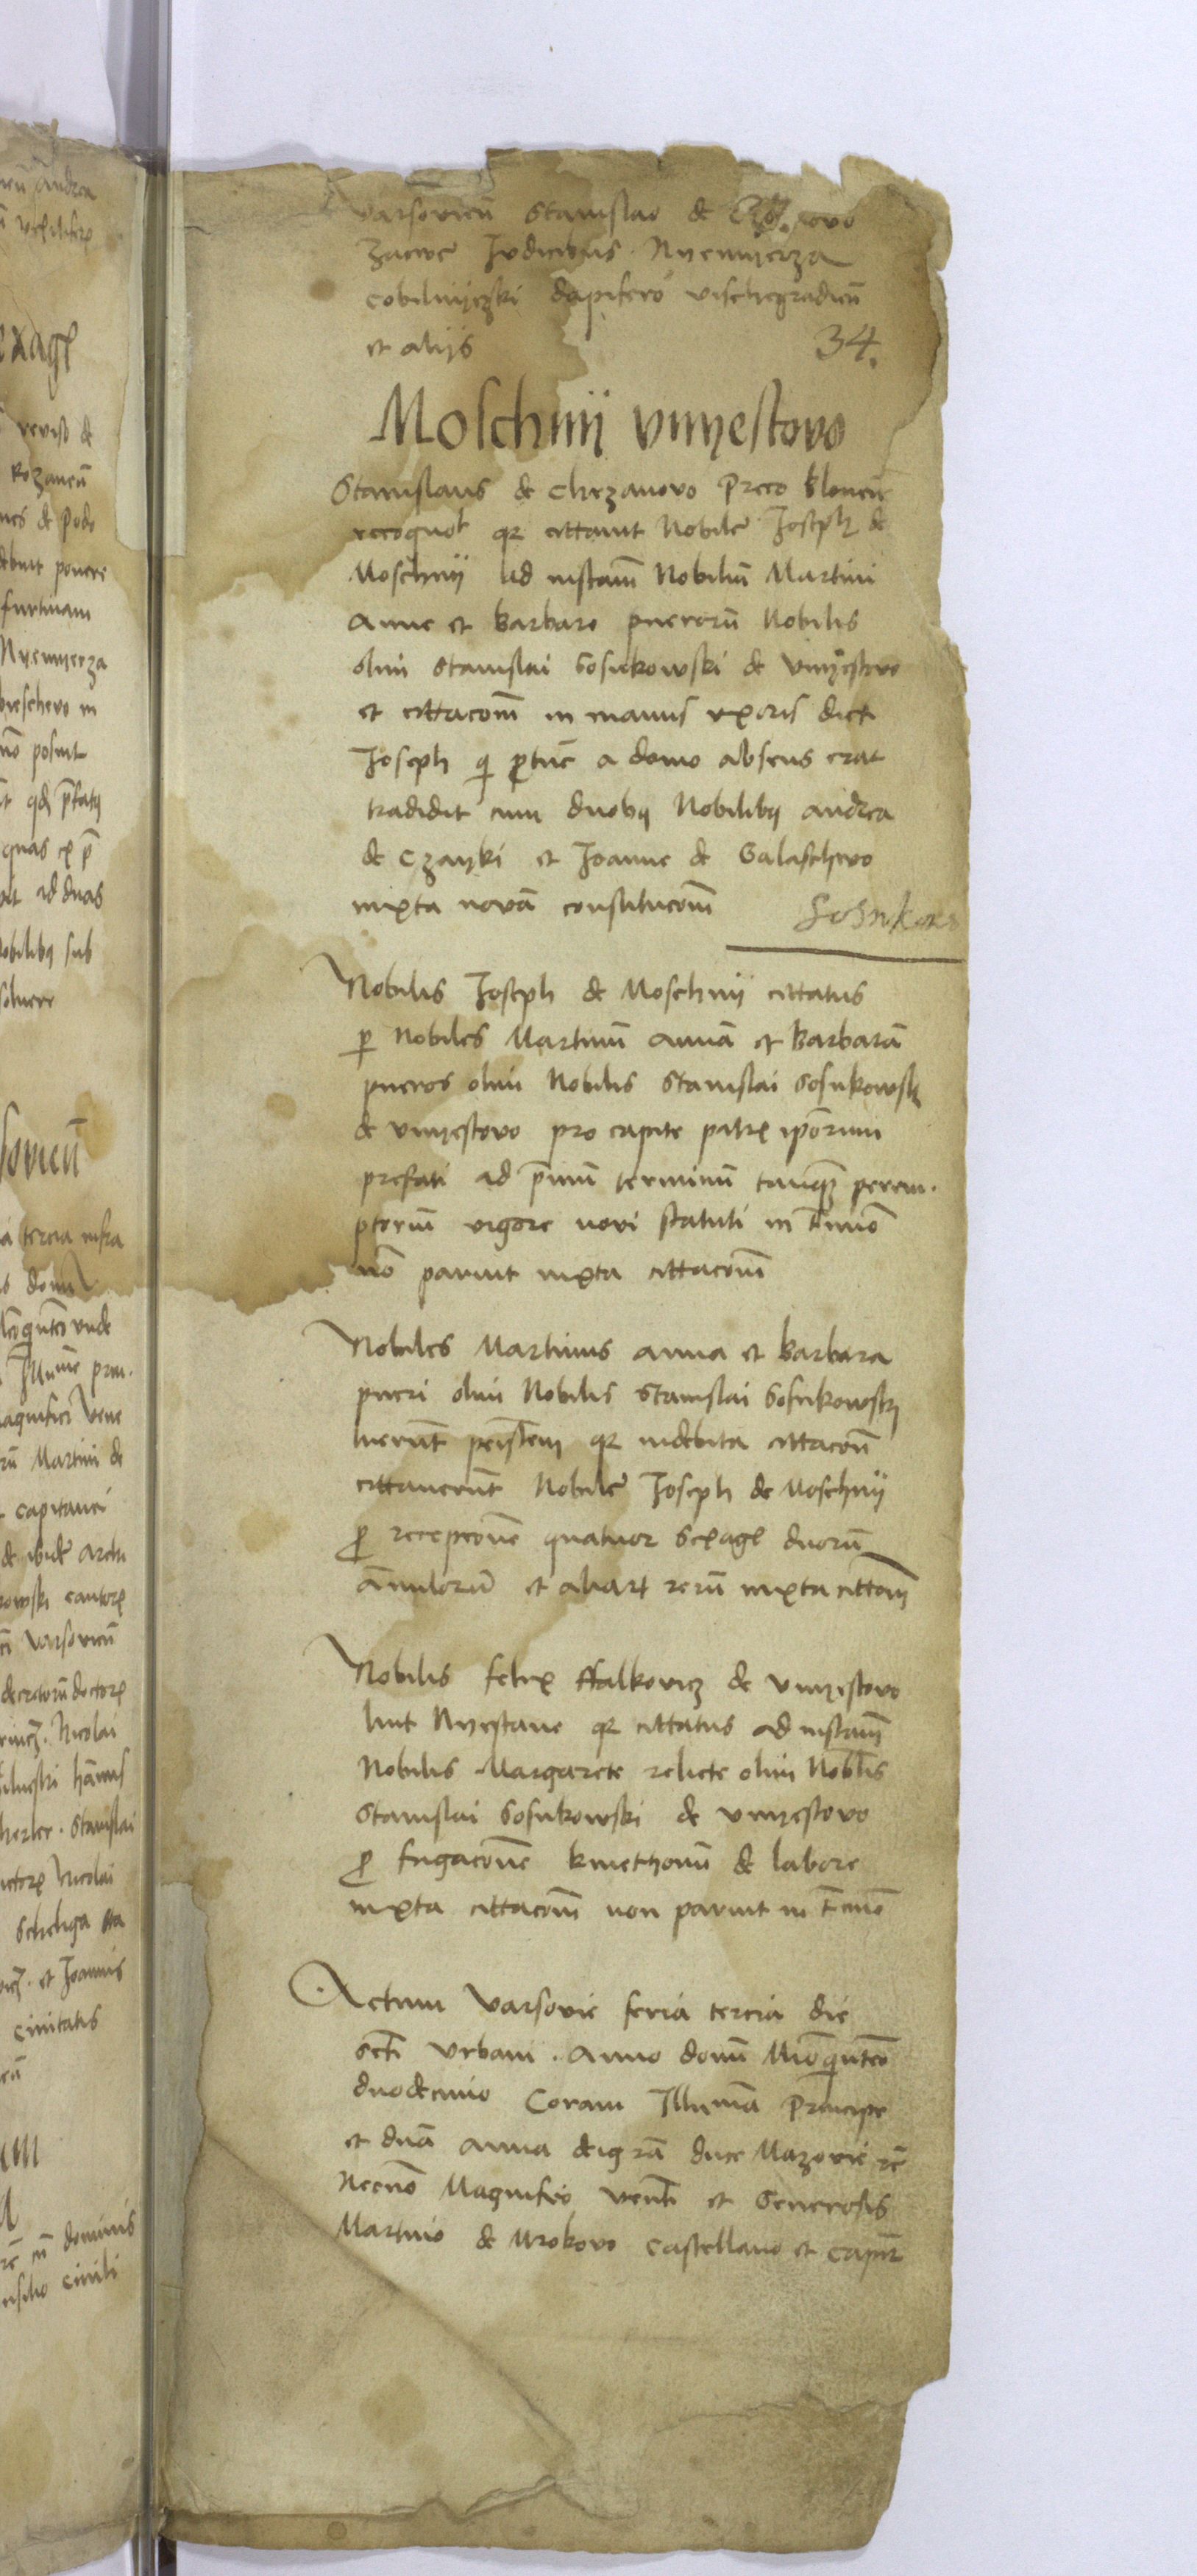 varsovien Stanislao de
zacior Judicibus Nyemyerza
cobilnyczki dapifero vischegradien
et alijs 34.
Moschnij vmyestovo
Stanislaus de Chrzanovo Preco blonen
recognot qr cittavit Nobile Joseph de
Moschnij ad instanm Nobiliu Martini
Anne et Barbare pueroru Nobilis
olim Stanislai Gosnkowski de vmyestovo
et cittacom in manus vxoris dict
Joseph qi ptunc a domo absens erat
tradidit cum duobq Nobilibq andrea
de Czayki et Joanne de Galaschevo
iuxta nova constitucom
Nobilis Joseph de Moschnij cittatus
p Nobiles Martinu anna et Barbara
pueros olim Nobilis Stanislai Gosnkowski
de vmyestovo pro capite patris iporum
prefati ad pmu terminu tanqz perem
ptoriu vigore novi statuti in tmino
no paruit iuxta cittacom
Nobiles Martinus anna et Barbara
pueri olim Nobilis Stanislai Gosnkowski
luerunt qr indebita cittacon
cittaverunt Nobile Joseph de Moschnij
p recepcone quatuor sexage duoru
anulorum et aliar reru iuxta cittom
Nobilis felix ffalkovicz de vmyestovo
luit Nyestane qr cittatus ad instanm
Nobilis Margarete relicte olim Noblis
Stanislai Gosnkowski de vmyestovo
p fugacone kmethonu de labore
iuxta cittacom non paruit in tmino
Actum varsovie feria tercia die
scti Vrbani . Anno domi Mioqunteo
duodecimo Coram Illuma Principe
et dna anna deigra duce Mazovie rc
Necno Magnifico venli et Generosis
Martino de Mrokovo castellano et capit